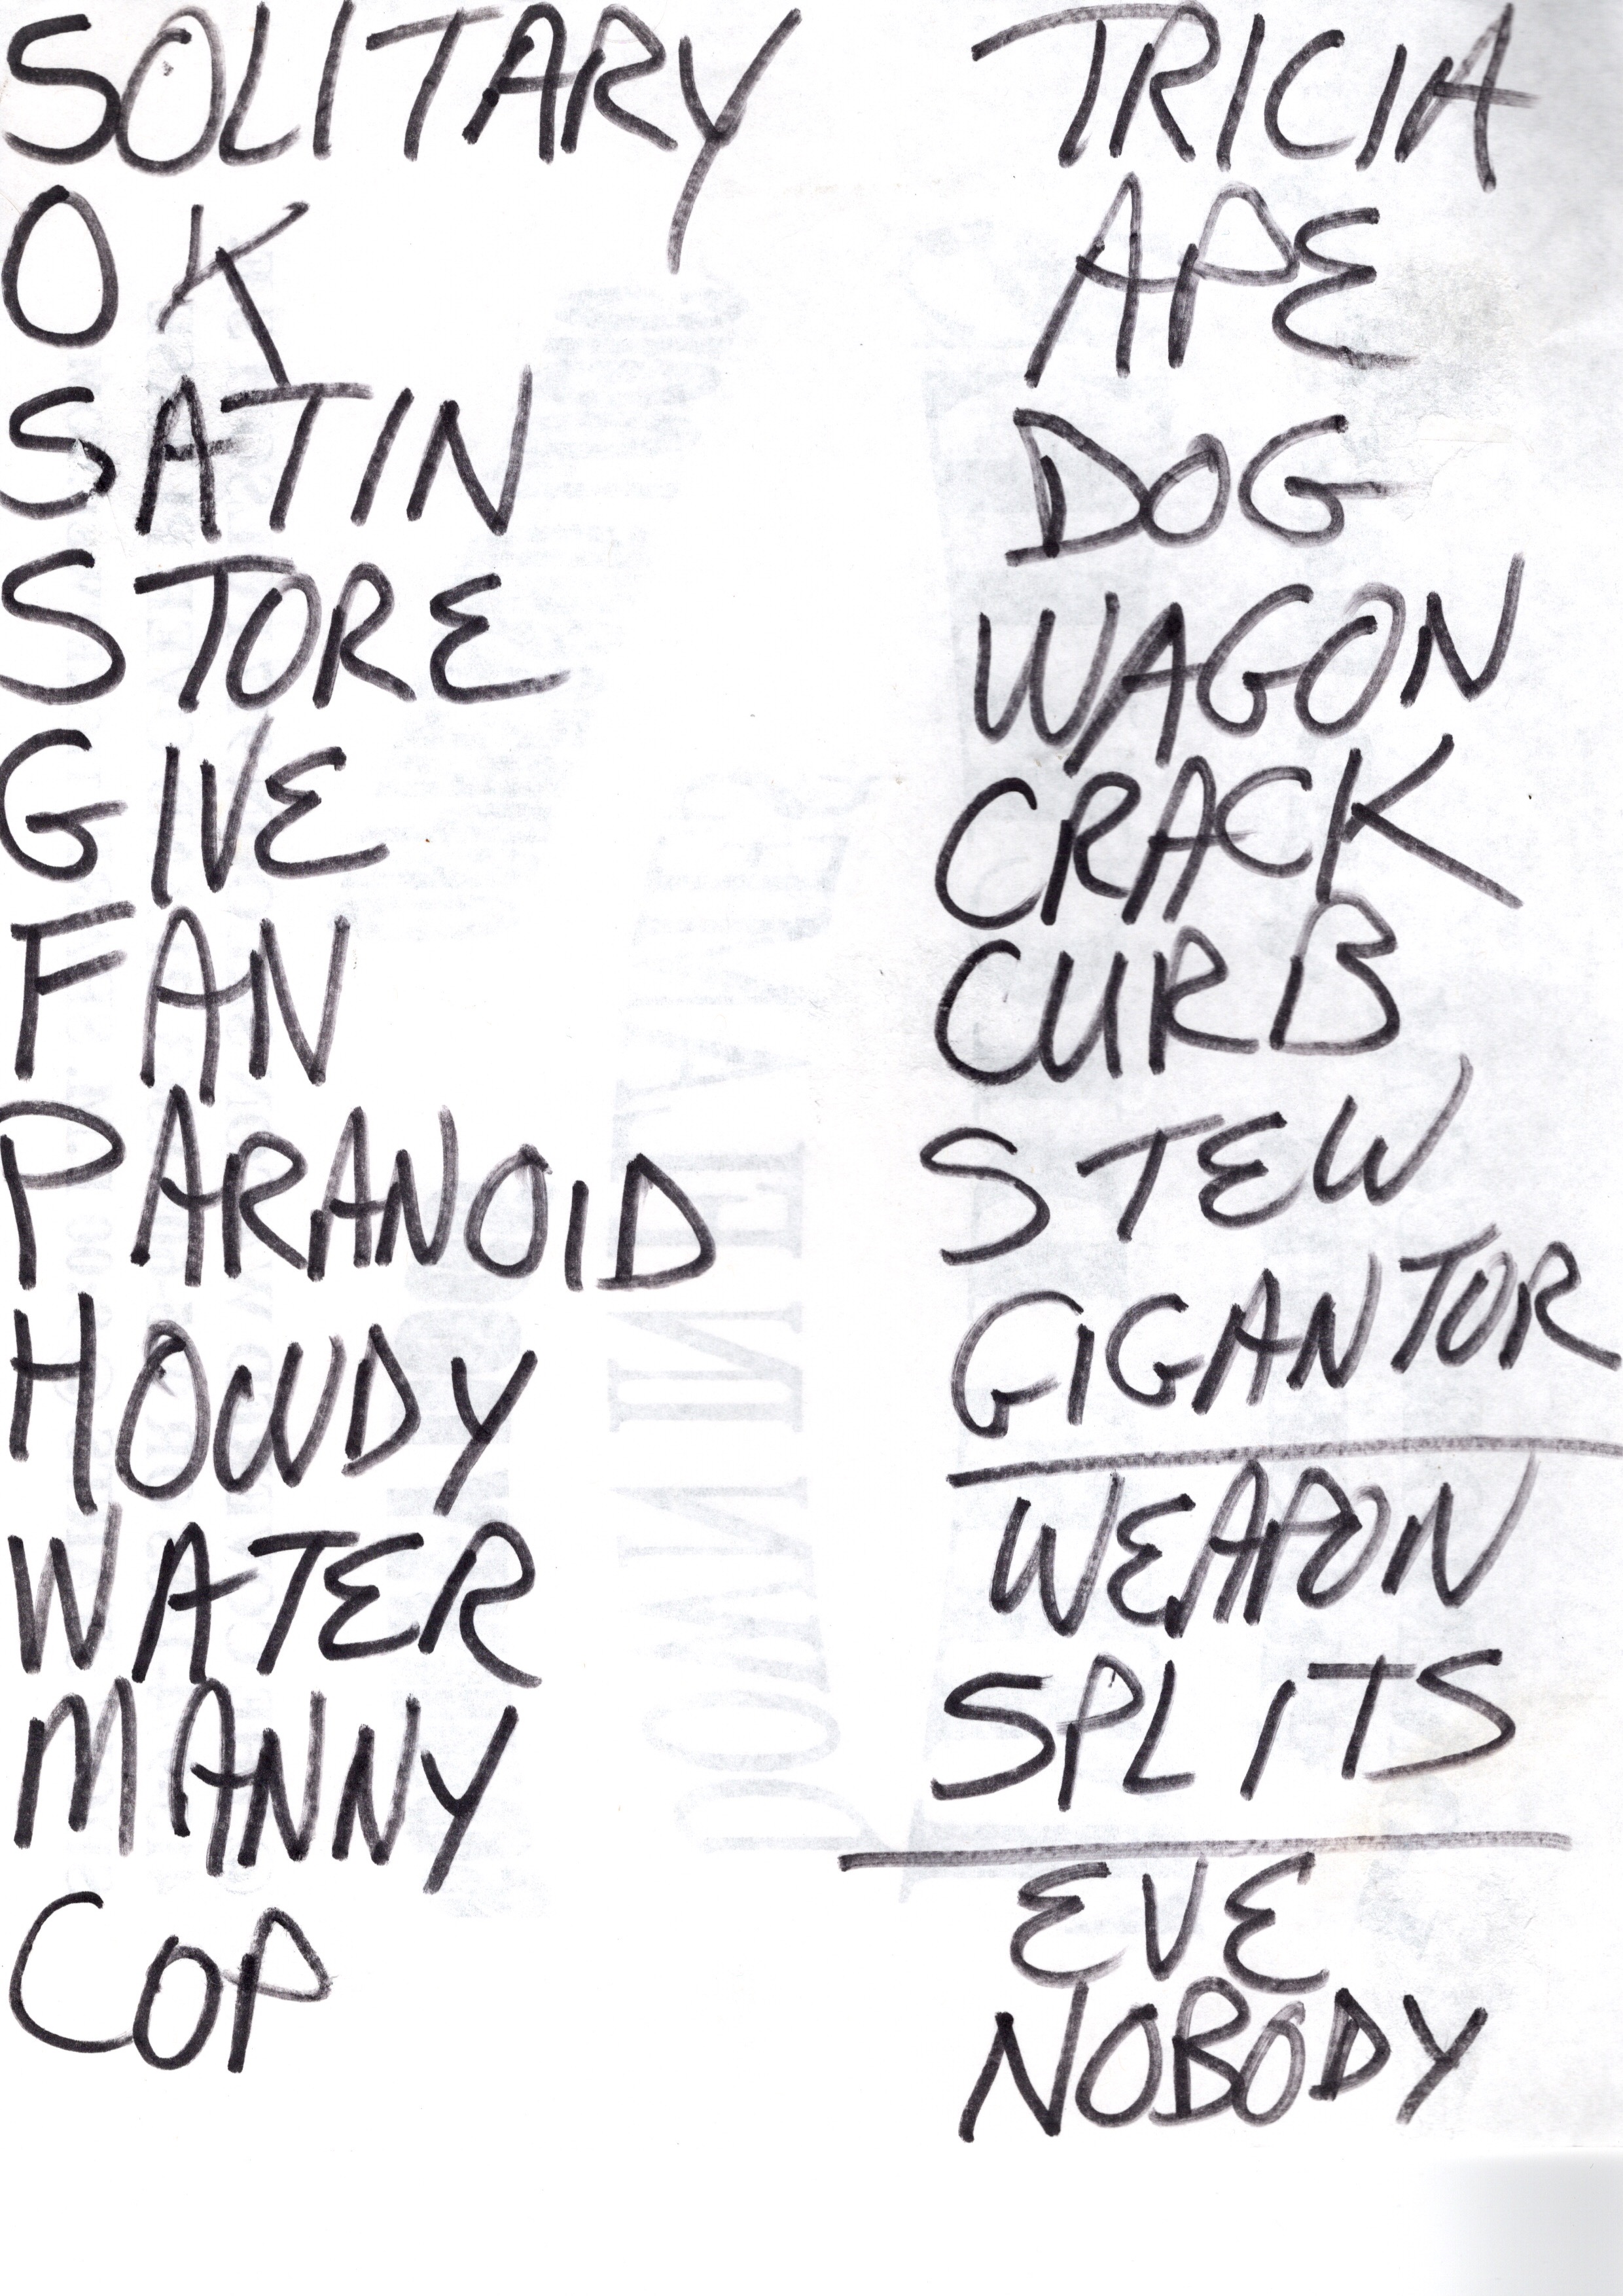 SOLITARY
OK
SATIN
STORE
GIVE
FAN
PARANOID
HOWDY
WATER
MANNY
COP
TRICIA
APE
DOG
WAGON
CRACK
CURB
STEW
GIGANTOR
WEAPON
SPLITS
EVE
NOBODY